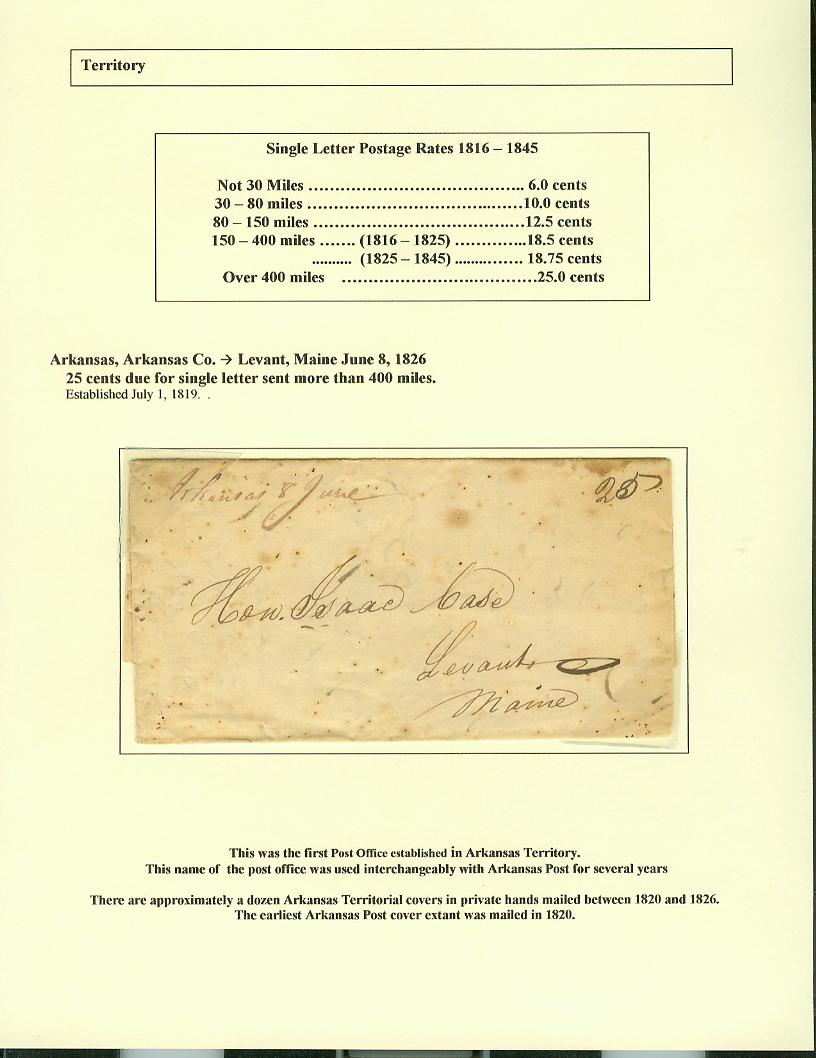 Territory
Single Letter Postage Rates 1816 – 1845
Not 30 Miles ........................................ 6.0 cents
30 – 80 miles ........................................10.0 cents
80 – 150 miles ........................................12.5 cents
150 – 400 miles ....... (1816 – 1825) .............18.5 cents
.......... (1825 – 1845) ............... 18.75 cents
Over 400 miles .....................................25.0 cents
Arkansas, Arkansas Co. → Levant, Maine June 8, 1826
25 cents due for single letter sent more than 400 miles.
Established July 1, 1819. .
Arkansas 8 June
25
Hon. Isaac Case
Levant
Maine
This was the first Post Office established in Arkansas Territory.
This name of the post office was used interchangeably with Arkansas Post for several years
There are approximately a dozen Arkansas Territorial covers in private hands mailed between 1820 and 1826.
The earliest Arkansas Post cover extant was mailed in 1820.